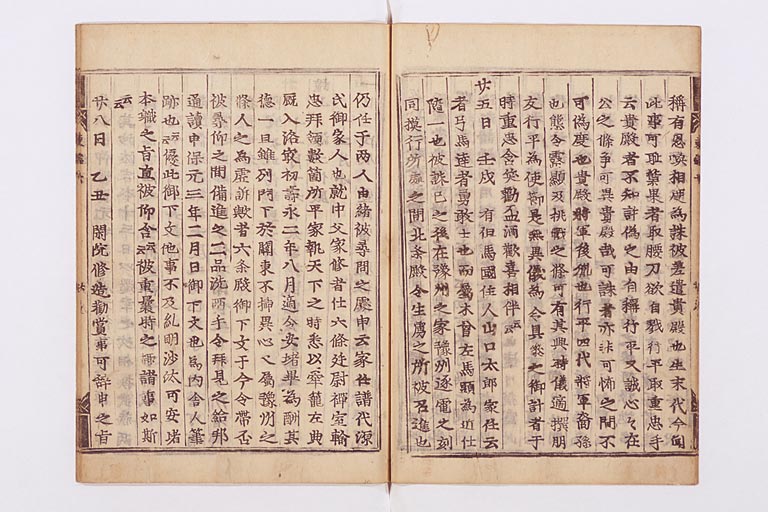 稱有恩喚相度為誅被差遣貴殿也生末代今聞
此事可耻業果者取腰刀欲自戮行平取重忠手
云貴殿者不知詐偽之由有稱行平又誠心々在
公之條爭可異貴殿哉可誅者亦非可怖之間不
可偽度也貴殿將軍後胤也行平四代將軍裔孫
也態令露顯及挑戰之條可有其興時儀適撰朋
友行平為使節是無異儀為令具參之御計者于
時重忠含咲勸盃酒歡喜相伴云云
廿五日 壬戌 有但馬國住人山口太郎家任云
者弓馬達者勇敢士也而屬木曾左馬頭為近仕
隨一也彼誅亡之後在豫州之家豫州逐電之刻
同摸行所 之間北条殿令生虜之所被召進也
仍任于兩人由緒被尋問之處申云家任譜代源
氏御家人也就中父家修者仕六條廷尉禪室輸
忠拜領數箇所平家執天下之時悉以牢籠左典
厩入洛最初壽永二年八月適令安堵畢為酬其
德一旦雖列門下於關東不挿異心又屬豫州之
條人之為虛訴歟者六条殿御下文于今令帶否
被尋仰之間備進之二品洗兩手令拜見之給邦
通讀申保元三年二月日御下文也為内舍人筆
跡也云云優此御下文他事不及糺明沙汰可安堵
本職之旨直被仰含云云被重最時之 諸事如斯
云云
廿八日 乙丑 閑院修造勸賞事可辭申之旨